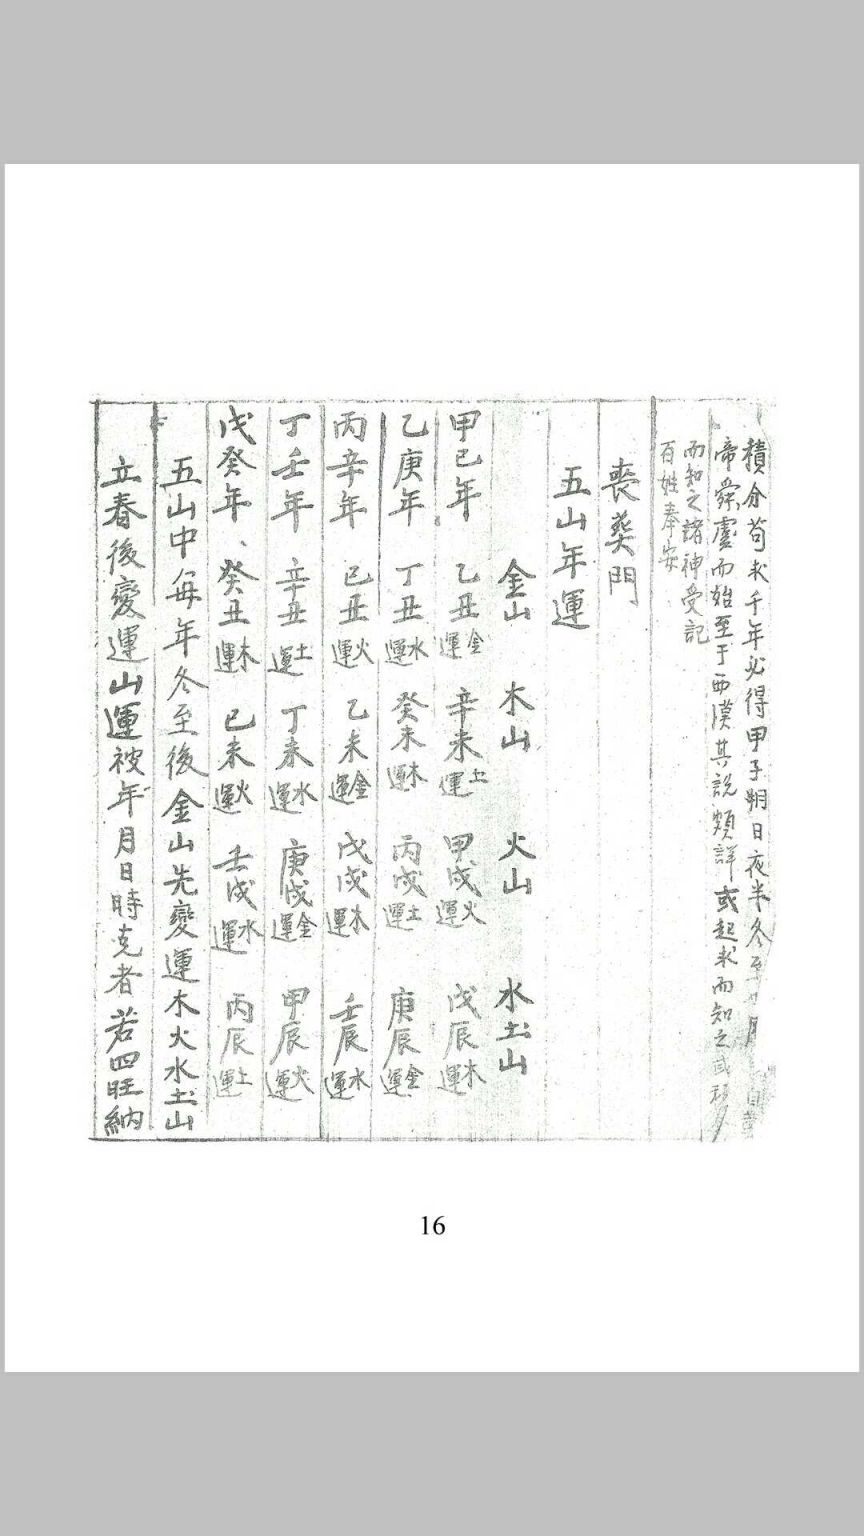 積分苟求千年必得甲子朔日夜半冬至
帝舜虞而始至于西漢其說頗詳或起求而知之或
而知之諸神受記
百姓奉安
喪葬門
五山年運
金山 木山 火山 水土山
甲己年 乙丑金運 辛未土運 甲戌火運 戊辰木運
乙庚年 丁丑水運 癸未木運 丙戌土運 庚辰金運
丙辛年 己丑火運 乙未金運 戊戌木運 壬辰水運
丁壬年 辛丑土運 丁未水運 庚戌金運 甲辰火運
戊癸年、癸丑木運 己未火運 壬戌水運 丙辰土運
五山中每年冬至後金山先變運木火水土山
立春後變運山運被年月日時克者若四旺納
16